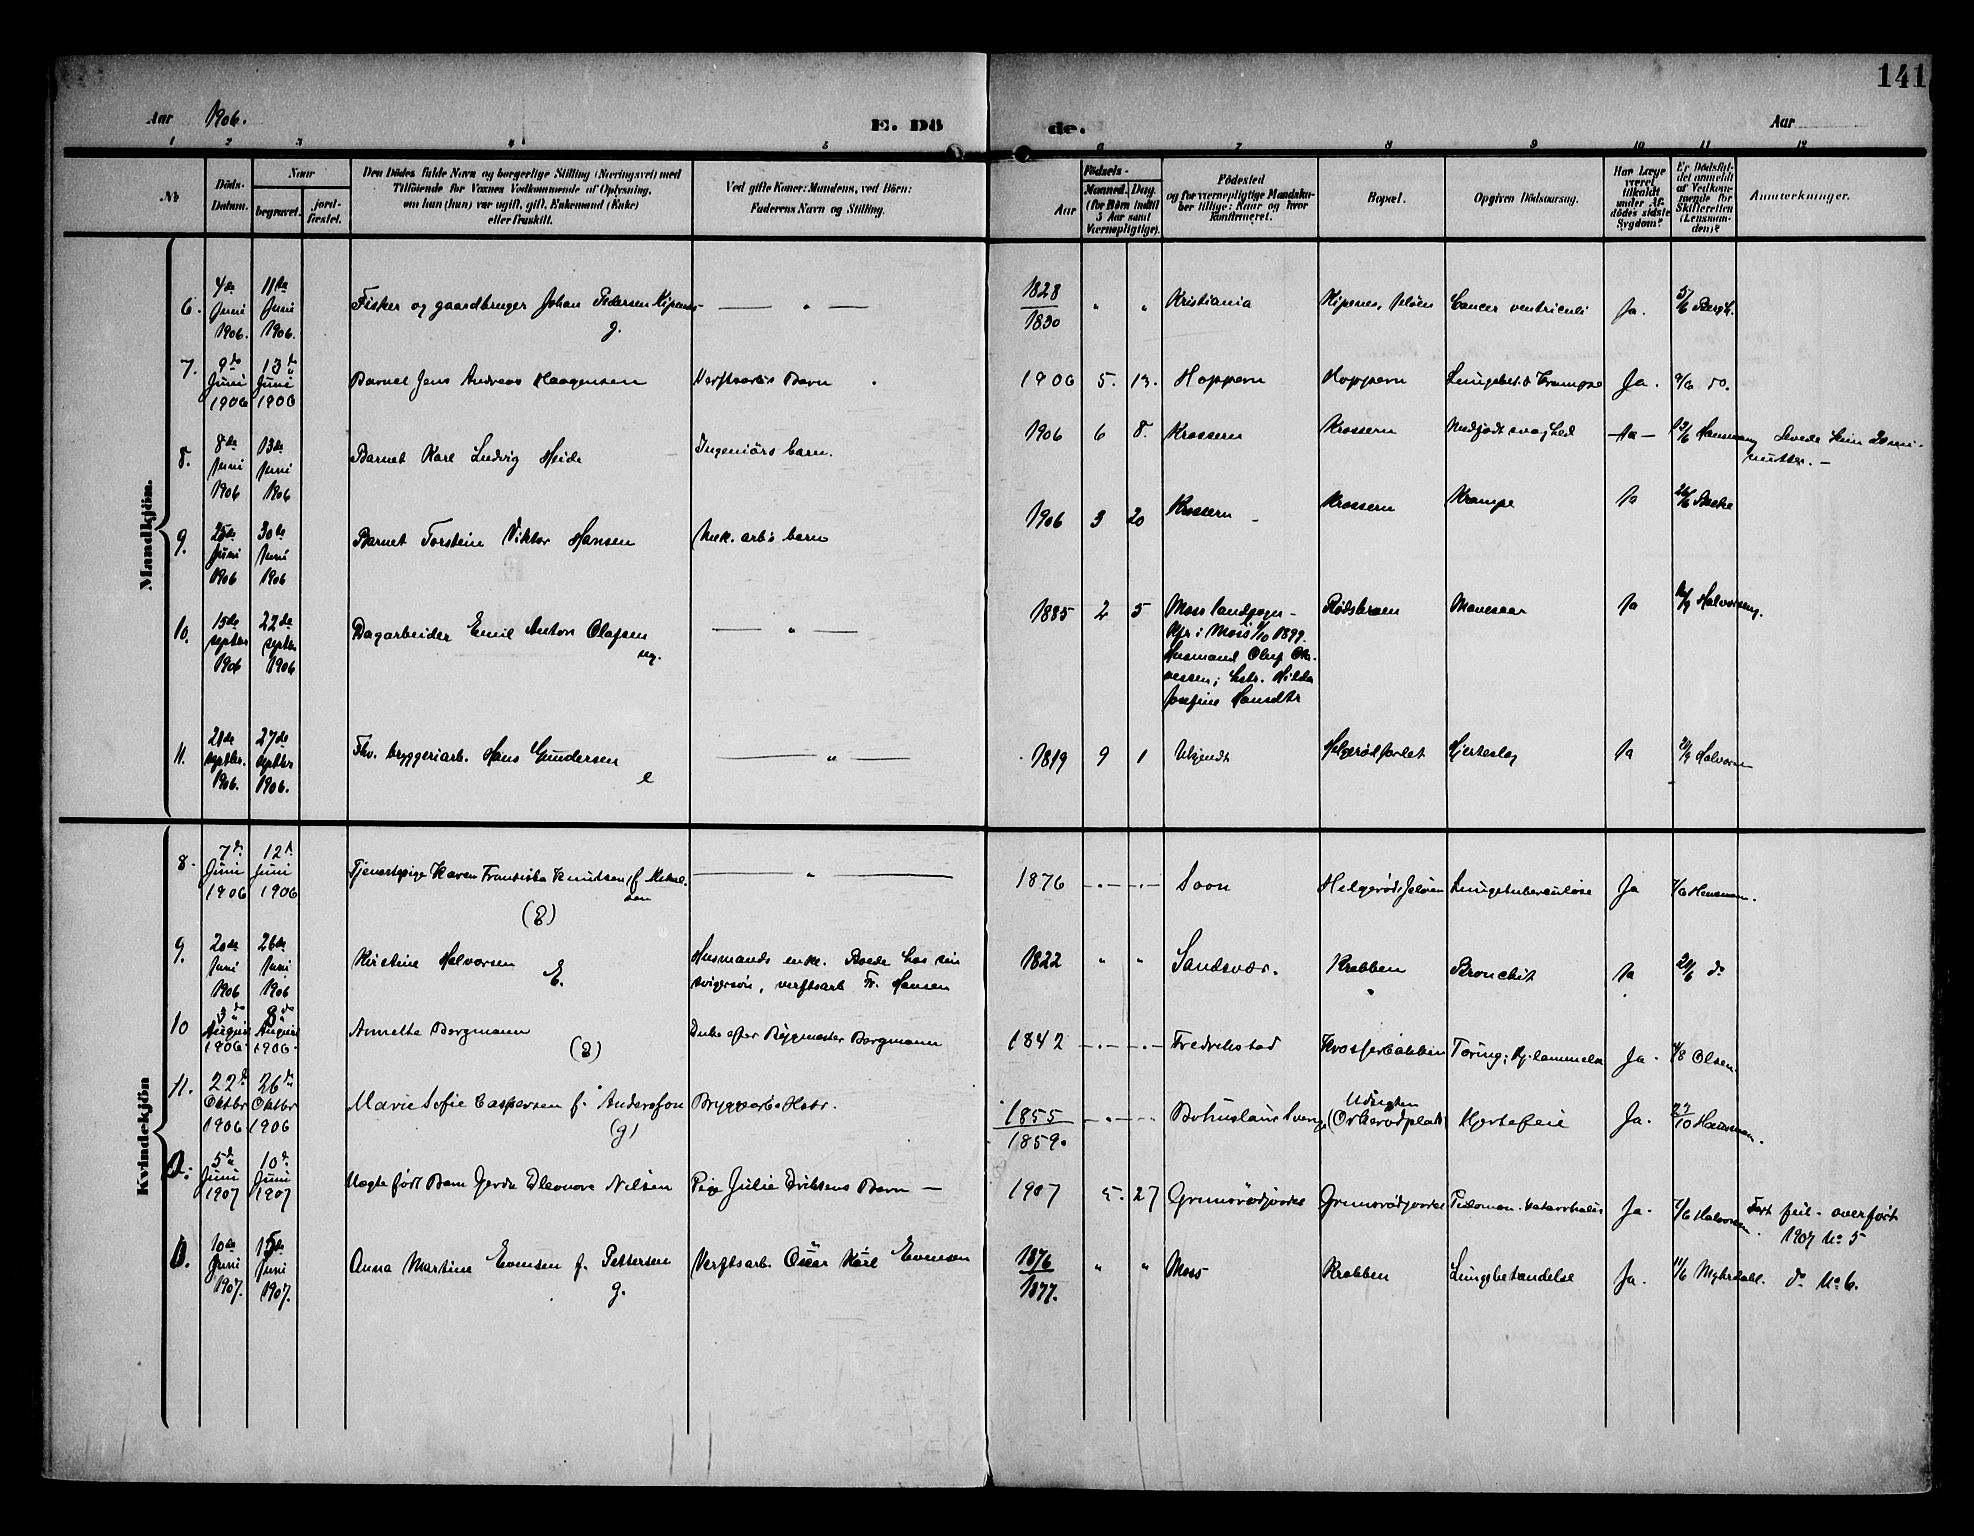 141
Aar 1906.
E. Dö
de.
Aar
1 2 3 4 5 6 7 8 9 10 11 12
No
Döds-
Datum.
Naar
begravet.
jord-
fæstet.
Den Dödes fulde Navn og borgerlige Stilling (Næringsvei) med
Tilföiende for Voxnes Vedkommende af Oplysning,
om han (hun) var ugift, gift, Enkemand (Enke)
eller fraskilt.
Ved gifte Koner: Mandens, ved Börn:
Faderens Navn og Stilling.
Födsels-
Aar
Maaned. Dag.
(for Börn indtil
5 Aar samt
Værnepligtige).
Födested
og for værnepligtige Mandskaber
tillige: Naar og hvor
konfirmeret.
Bopæl.
Opgiven Dödsaarsag.
Har Læge
været
tilkaldt
under Af-
dödes sidste
Sygdom?
Er Dödsfal-
det anmeldt
af Vedkom-
mende for
Skifteretten
(Lensman-
den)?
Anmerkninger.
Mandkjön.
6. 4de Juni 1906. 11te Juni 1906. Fisker og gaardbruger Johan Pedersen Kipenes g. — " — 1828/1830 " " Kristiania Kipenes, Jeløen Cancer ventriculi Ja. 5/6 Bergh.
7. 9de Juni 1906 13de Juni 1906 Barnet Jens Andreas Haagensen Verftsarb's Barn 1906 5. 13. Hoppern Hoppern Lungebet. & Krampe Ja. 9/6 do.
8. 8de Juni 1906 13de Juni 1906 Barnet Karl Ludvig Heide Ingeniörs barn. 1906 6 8. Krossern Krossern Medfødt svaghed Ja 13/6 Hansmann Levede kun 20 mi-
nutter. —
9. 25de Juni 1906 30te Juni 1906 Barnet Torstein Viktor Hansen Mek. arb's barn 1906 3 20 Krossern Krossern Krampe Ja 26/6 Bakke
10. 15de septbr 1906 22de septbr 1906 Dagarbeider Emil Anton Olafsen ug. — " — 1885 2 5 Moss landsogn –
Kfr. i Moss 8/10 1899.
Husmand Oluf
Hilda
Josefine Hansdtr
Rødsbraaen Mavesaar Ja Halvorsen.
11. 21de septbr. 1906. 27de septbr 1906. Fhv. bryggeriarb. Hans Gundersen e — " — 1819 9 1 Ukjendt Helgerødfarlet Hjerteslag Ja 21/9 Halvorsen
Kvindekjön
8. 7de Juni 1906 12te Juni 1906 Tjenestepige Karen Franciska Knudsen, f. Mikal-
sen (E) — " — 1876 —.— —.— Soon Helgerød, Jeløen Lungetuberculose Ja 7/6 Hansmann.
9. 20de Juni 1906 26de Juni 1906 Kirstine Halvorsen E. Husmands enke. Boede hos sin
svigersøn, verftsarb Fr. Hansen 1822 " " Sandsvær. Krabben Bronchit Ja 21/6 do
10 3de August 1906. 8de August 1906. Annette Borgmann (E) Enke efter Bygmester Borgmann 1842 —.— —.— Fredrikstad Krosserbakken Tæring; Hj.lammelse Ja. 4/8 Olsen.
11. 22de Oktbr 1906 26de Oktbr 1906 Marie Sofie Caspersen f. Andersson (g) Bryggearb. Hstr. 1855/1859. —.— —.— Bohuslaun Sverige Udsigten
(Orkerødplads) Hjertefeil Ja. 23/10 Hansmann.
5de Juni 1907 10de Juni 1907 Uægte født Barn Gerda Eleonora Nilsen Pige Julie Eriksens Barn — 1907 5. 27 Grimsrødjordet Grimsrødjordet katarrhalis Ja. 7/6 Halvorsen. Ført feil – overført
1907 No 5
10de Juni 1907. 15de Juni 1907. Anna Martine Evensen f. Pettersen g. Verftsarb. Oscar Karl Evensen 1876/1877. " " Moss Krabben Lungebetændelse Ja. 11/6 Myhrdahl. do No 6.